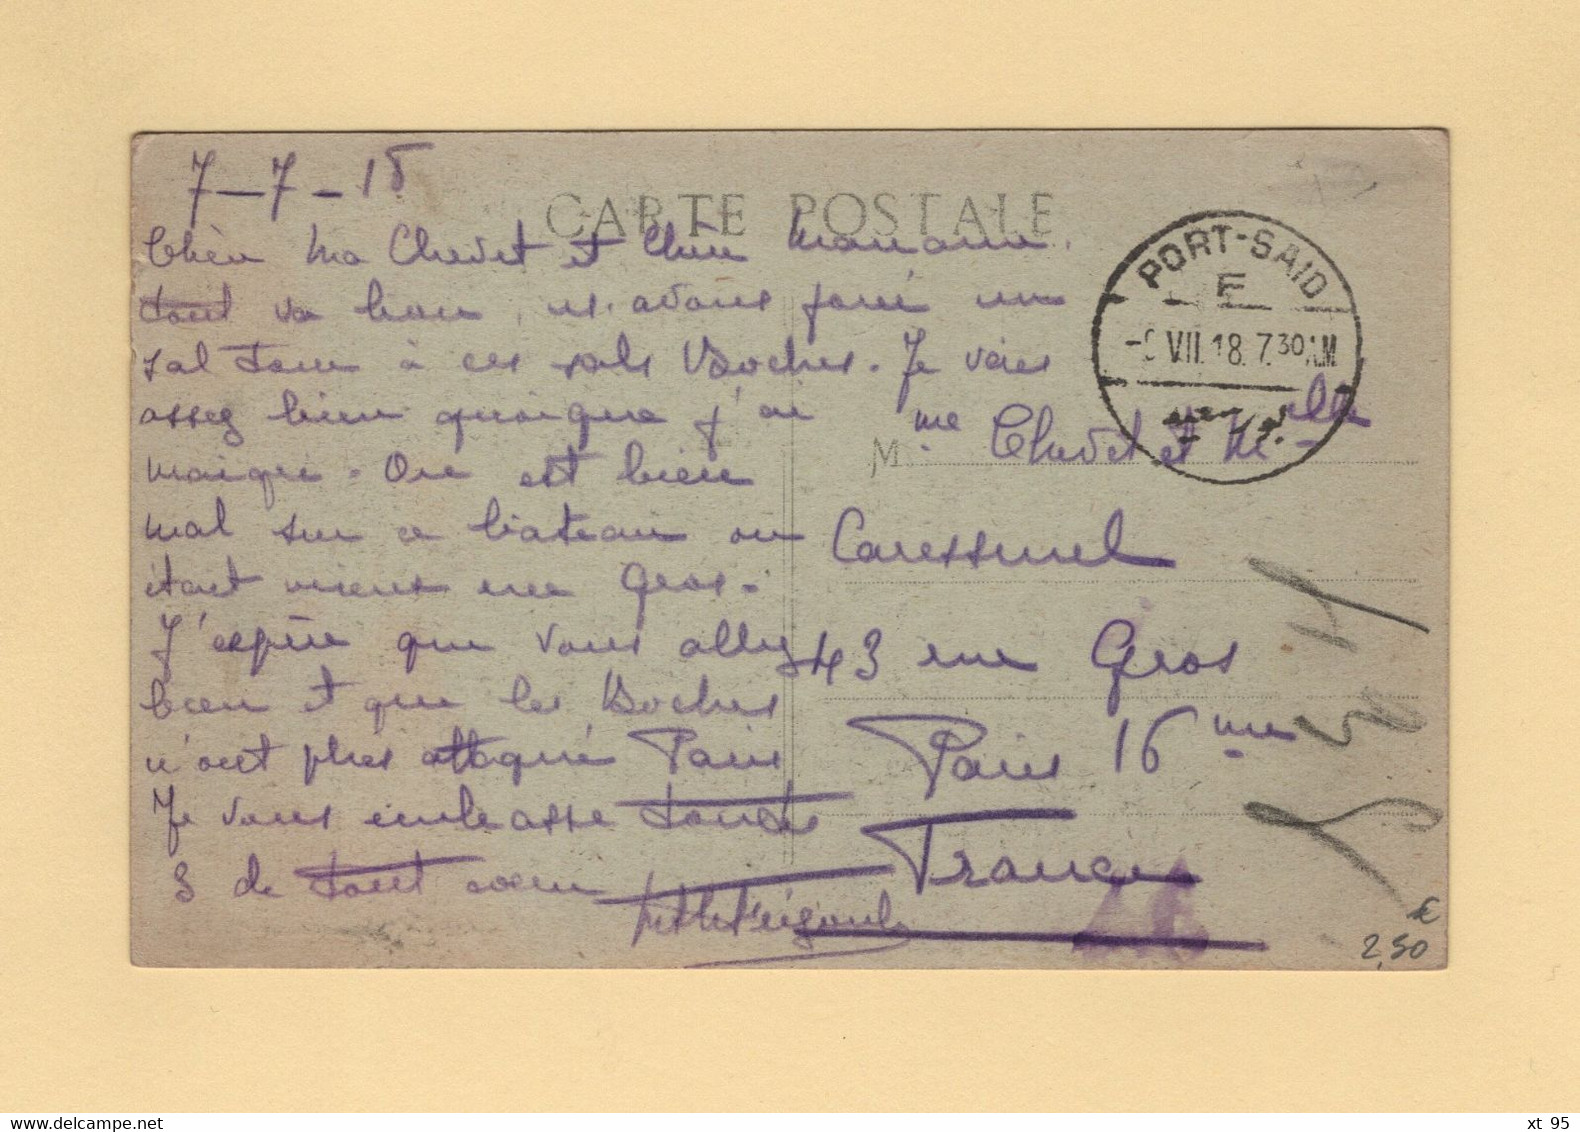 7-7-18
CARTE POSTALE
Chère Ma Chevet et Chère Marraine.
tout va bien, ns. avons joué un
sal tour à ces sals Boches. Je vais
assez bien quoique j'ai
maigri. On est bien
mal sur ce bateau on
était mieux rue Gros.
J'espère que vous allez
bien et que les Boches
n'ont plus attaqué Paris
Je vous embrasse toutes
3 de tout cœur
PORT-SAID
E
VII.18.7.30AM
M
me Chevet et Melle
43 rue Gros
Paris 16me
France
€
2,50
xt 95